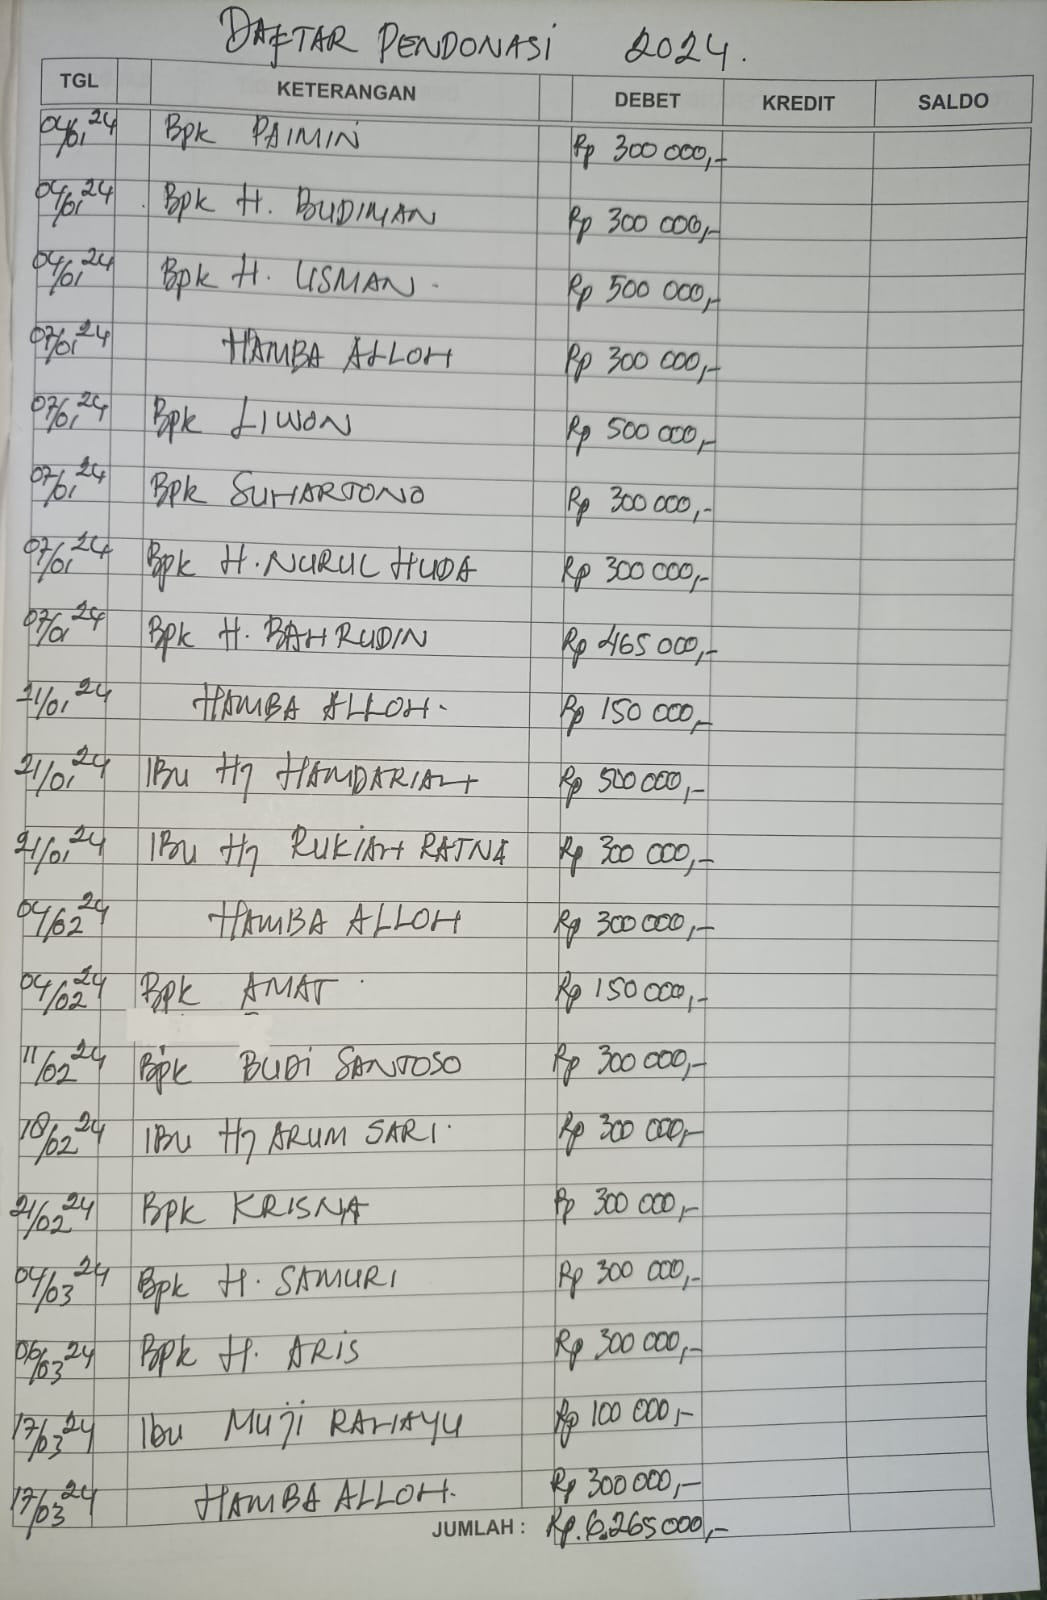 DAFTAR PENDONASI 2024.
TGL KETERANGAN DEBET KREDIT SALDO
04/01 24 Bpk PAIMIN Rp 300 000,-
04/01 24 Bpk H. BUDIMAN Rp 300 000,-
04/01 24 Bpk H. USMAN Rp 500 000,-
07/01 24 HAMBA ALLOH Rp 300 000,-
07/01 24 Bpk LIWON Rp 500 000,-
07/01 24 Bpk SUHARTONO Rp 300 000,-
07/01 24 Bpk H. NURUL HUDA Rp 300 000,-
07/01 24 Bpk H. BAHRUDIN Rp 465 000,-
21/01 24 HAMBA ALLOH. Rp 150 000,-
21/01 24 IBu Hj HAMDARIAH Rp 500 000,-
21/01 24 IBu Hj RUKiAH RATNA Rp 300 000,-
04/02 24 HAMBA ALLOH Rp 300 000,-
04/02 24 Bpk AMAT Rp 150 000,-
11/02 24 Bpk BUDi SANTOSO Rp 300 000,-
18/02 24 IBu Hj ARUM SARI. Rp 300 000,-
21/02 24 Bpk KRISNA Rp 300 000,-
04/03 24 Bpk H. SAMURI Rp 300 000,-
06/03 24 Bpk H. ARiS Rp 300 000,-
17/03 24 Ibu MUji RAHAYU Rp 100 000,-
17/03 24 HAMBA ALLOH. Rp 300 000,-
JUMLAH : Rp. 6.265 000,-